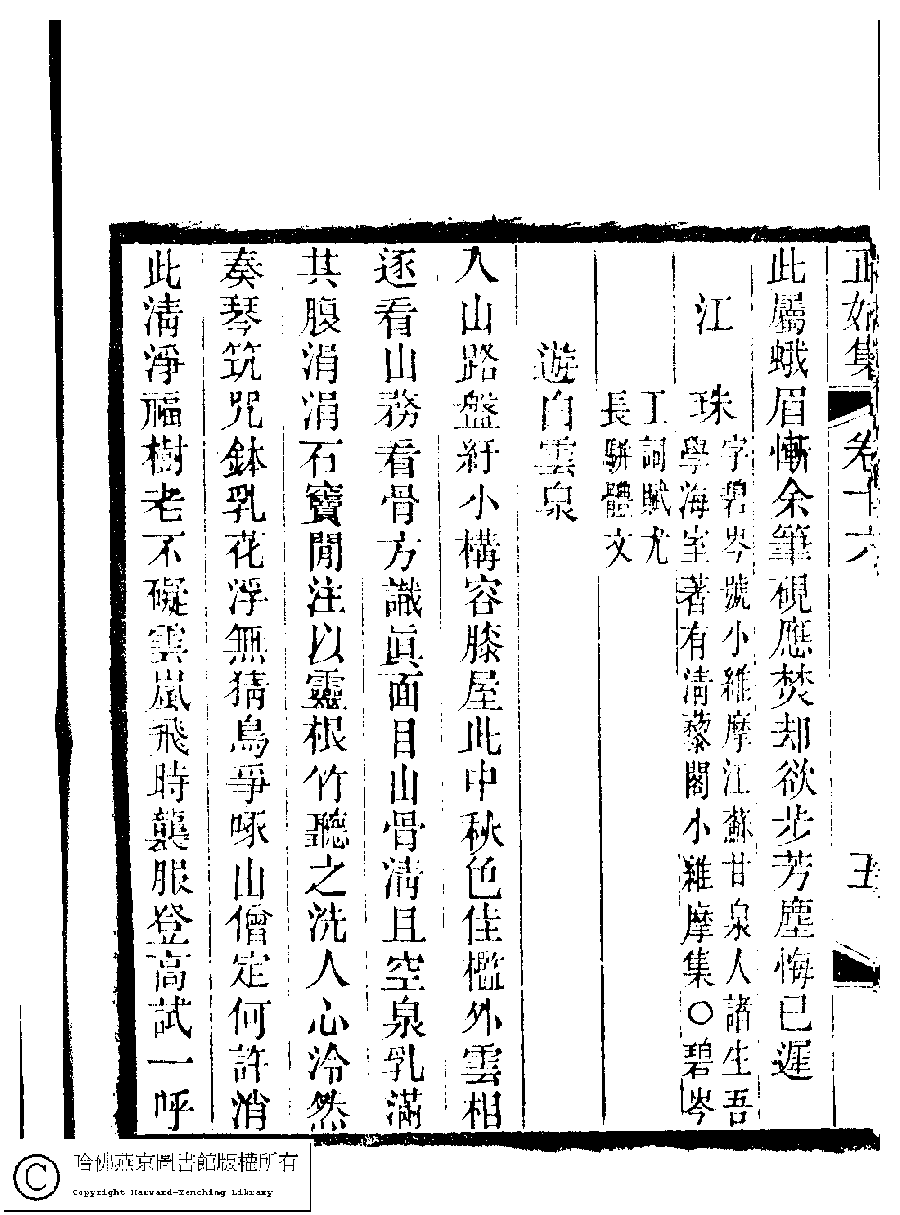 正始集 卷十六 五
此屬蛾眉慚余筆硯應焚却欲步芳塵悔已遲
江珠字碧岑號小維摩江蘇甘泉人諸生吾
學海室著有清藜閣小維摩集○碧岑
工詞賦尤
長駢體文
遊白雲泉
入山路盤紆小構容膝屋此中秋色佳檻外雲相
逐看山務看骨方識眞面目山骨清且空泉乳滿
其腹涓涓石竇閒注以靈根竹聽之洗人心泠然
奏琴筑咒鉢乳花浮無猜鳥爭啄山僧定何許消
此清淨福樹老不礙雲嵐飛時襲服登高試一呼
哈佛燕京圖書館版權所有
Copyright Harvard-Yenching Library